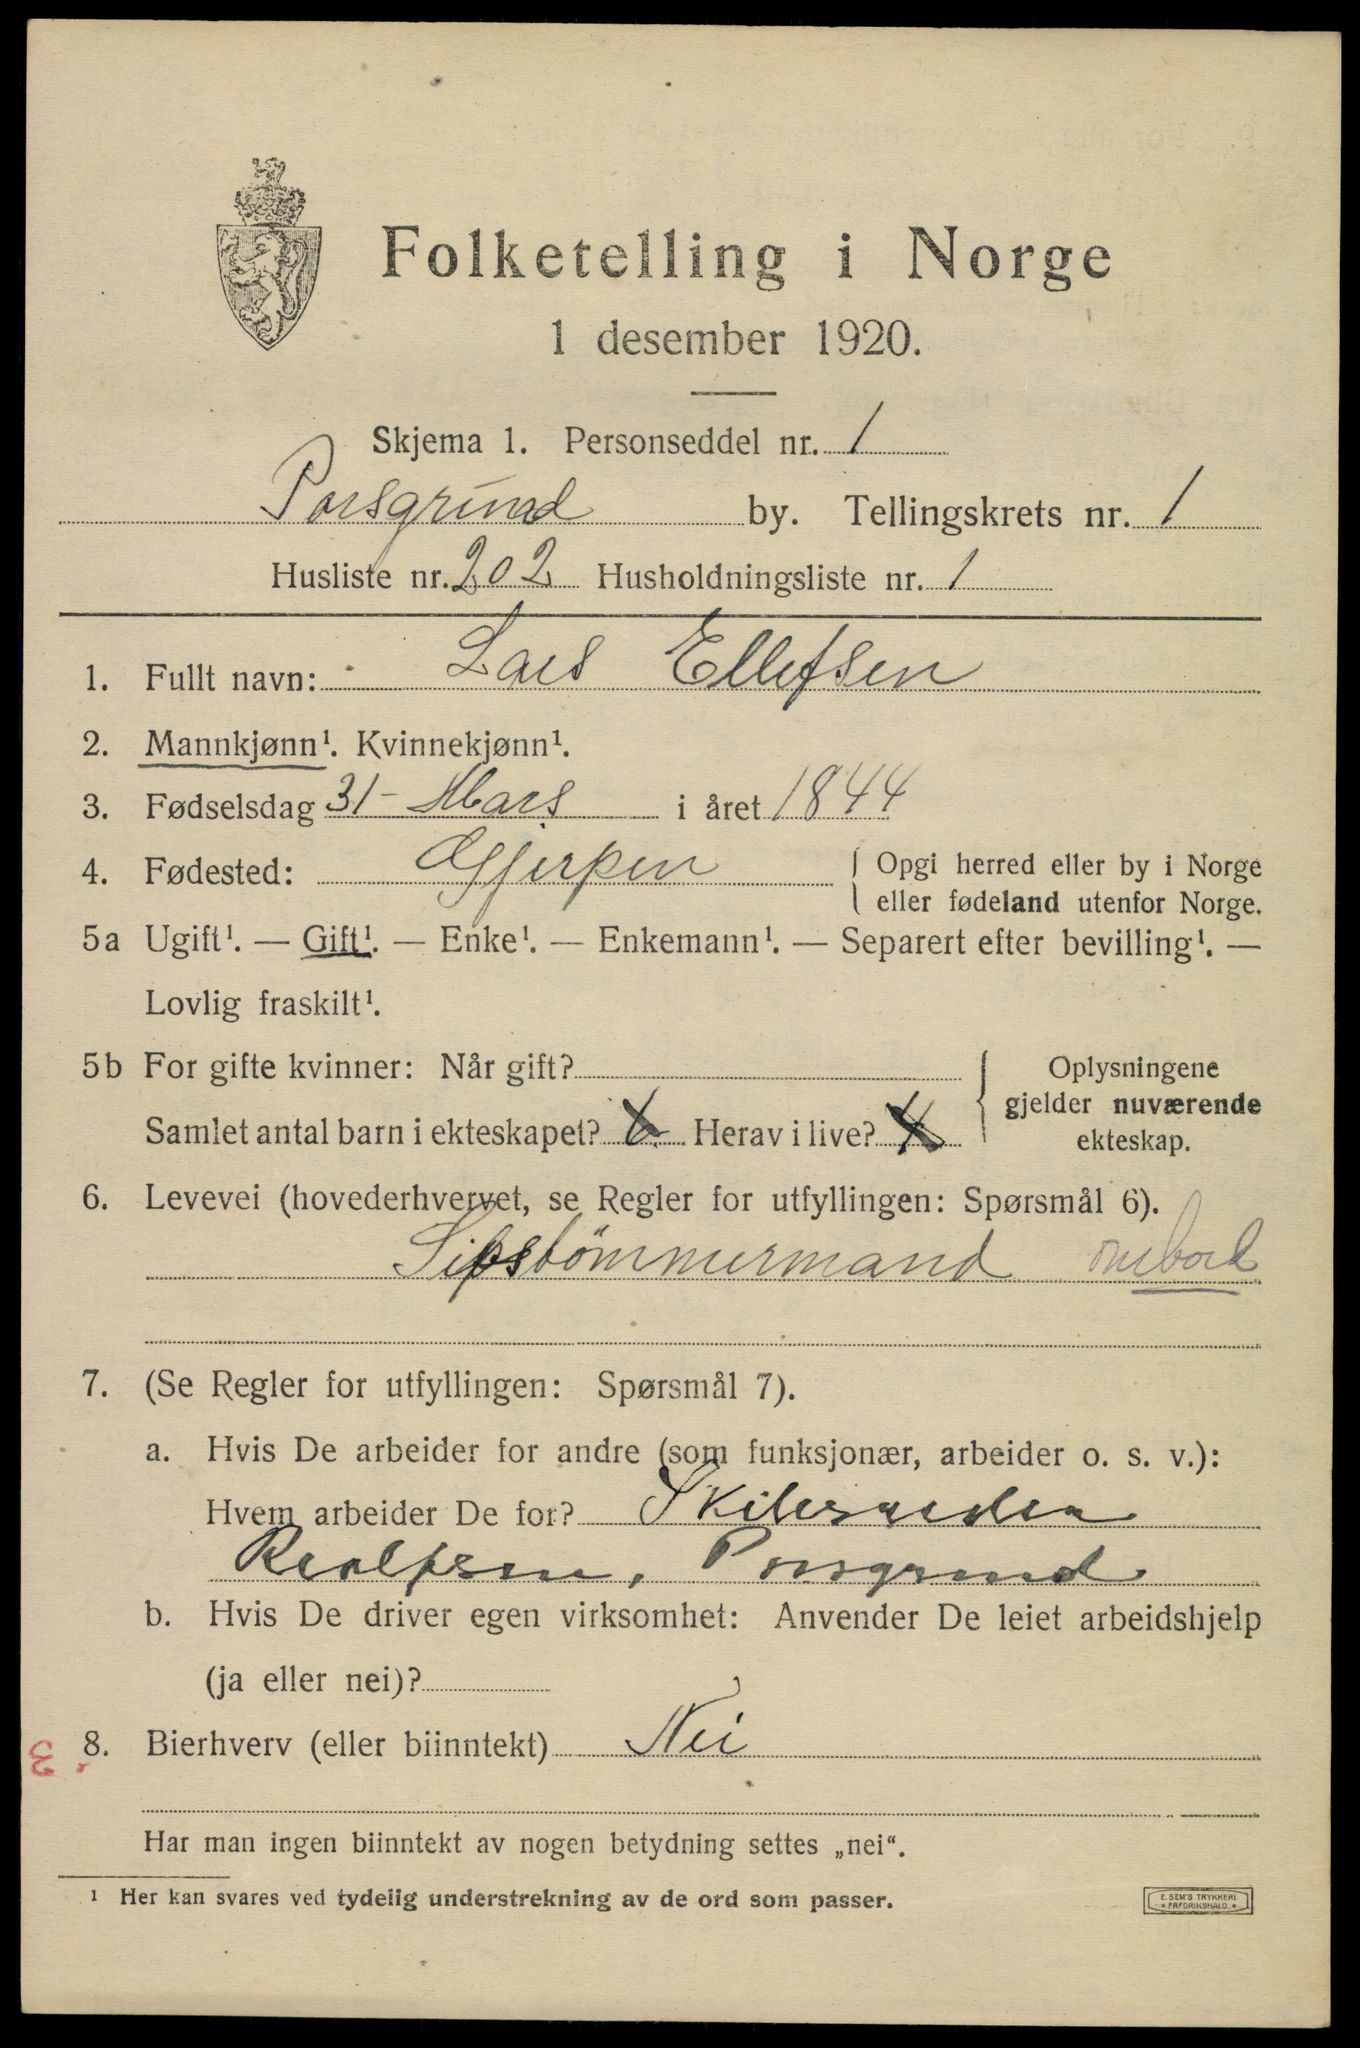 Folketelling i Norge
1 desember 1920.
Skjema 1. Personseddel nr. 1
Porsgrund by. Tellingskrets nr. 1
Husliste nr. 202 Husholdningsliste nr. 1
1. Fullt navn: Lars Ellefsen
2. Mannkjønn¹. Kvinnekjønn¹.
3. Fødselsdag 31- Mars i året 1844
4. Fødested: Gjerpen
Opgi herred eller by i Norge
eller fødeland utenfor Norge.
5a Ugift¹. — Gift¹. — Enke¹. — Enkemann¹. — Separert efter bevilling¹. —
Lovlig fraskilt¹.
5b For gifte kvinner: Når gift?
Samlet antal barn i ekteskapet? 6 Herav i live? 4
Oplysningene
gjelder nuværende
ekteskap.
6. Levevei (hovederhvervet, se Regler for utfyllingen: Spørsmål 6).
Sipstömmermand ombord
7. (Se Regler for utfyllingen: Spørsmål 7).
a. Hvis De arbeider for andre (som funksjonær, arbeider o. s. v.):
Hvem arbeider De for?
Porsgrund
b. Hvis De driver egen virksomhet: Anvender De leiet arbeidshjelp
(ja eller nei)?
8. Bierhverv (eller biinntekt) Nei
3
Har man ingen biinntekt av nogen betydning settes „nei“.
¹ Her kan svares ved tydelig understrekning av de ord som passer.
E. SEM'S TRYKKERI
* FREDRIKSHALD. *